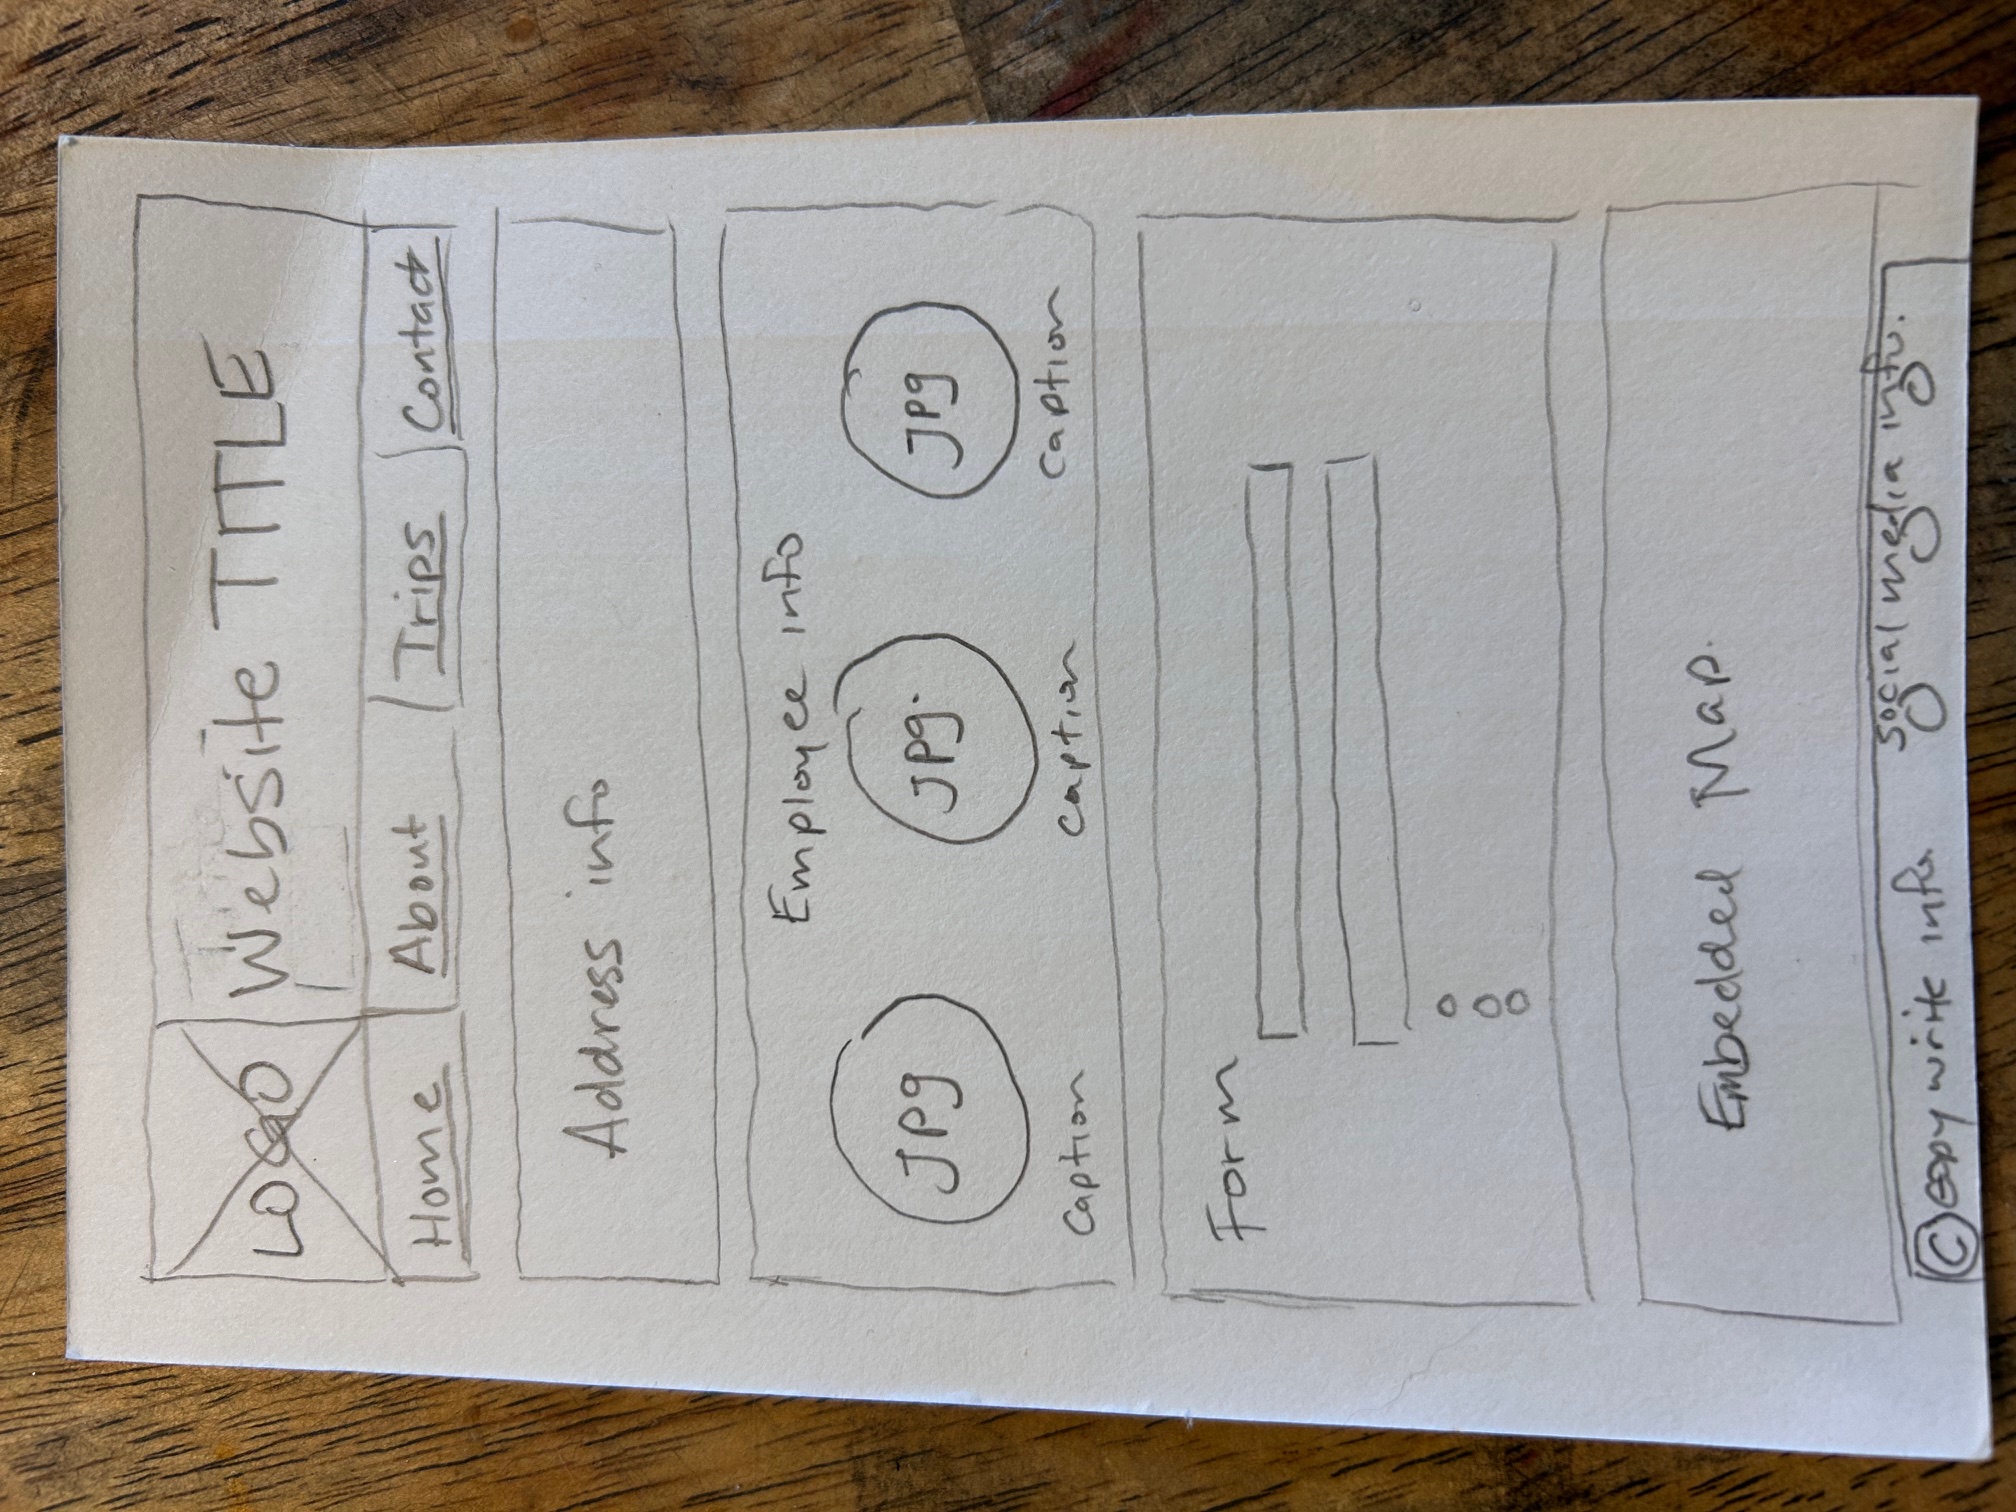 LOGO
Website TITLE
Home About Trips Contact
Address info
Employee info
JPg JPg. JPg
Caption caption caption
Form
Embedded Map.
social media info.
© copy write info